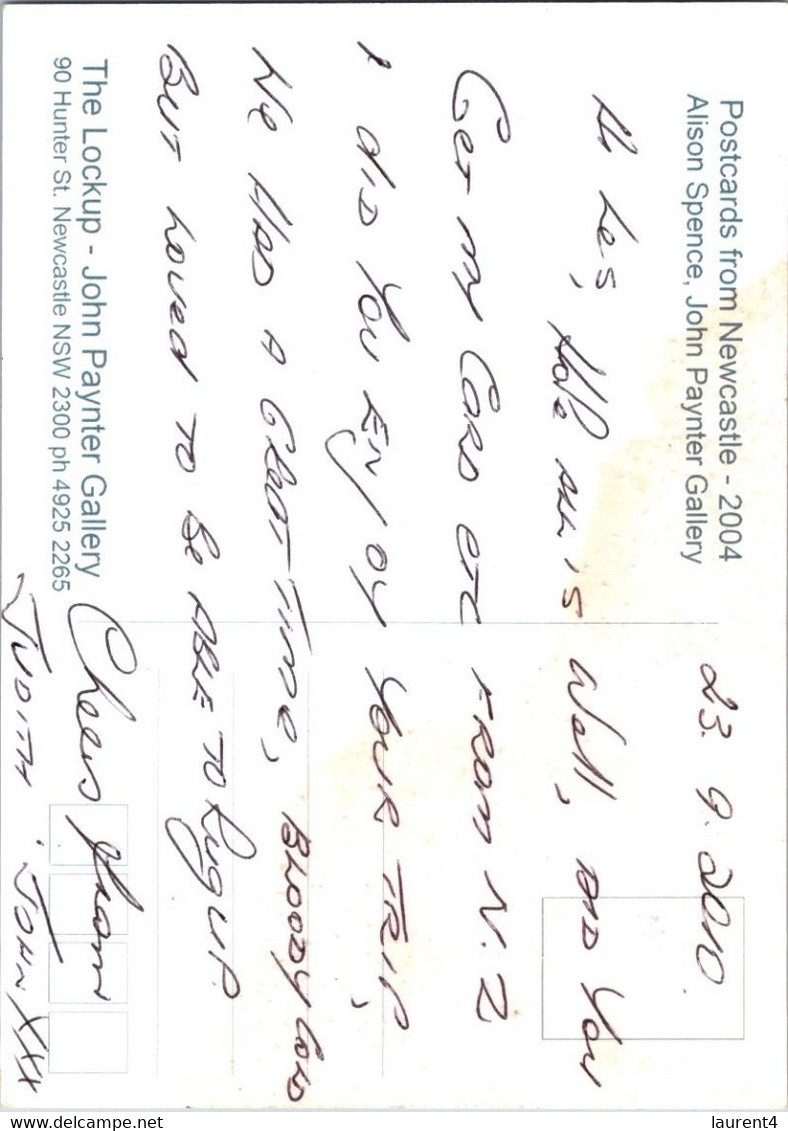 Postcards from Newcastle - 2004
Alison Spence, John Paynter Gallery
23.9.2010.
Hi Les, Hope all is well, DID You
Get my Card etc FROM N.Z
& did You Enjoy Your TRIP,
We Had A Great Time, Bloody Cold
But Loved To Be ABLE TO Rug UP.
Cheers From
Judith . John XXX
The Lockup - John Paynter Gallery
90 Hunter St. Newcastle NSW 2300 ph 4925 2265
www.delcampe.net
laurent4